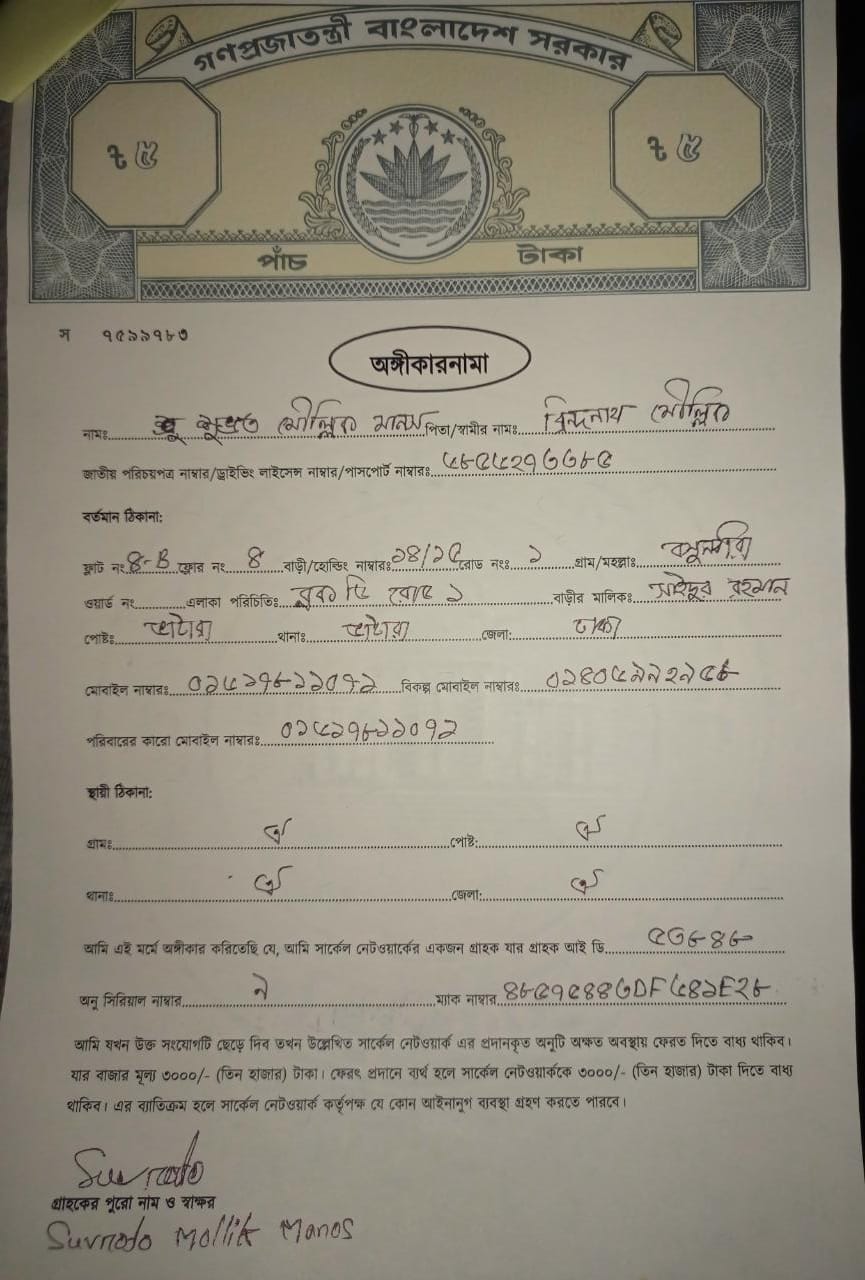 গণপ্রজাতন্ত্রী বাংলাদেশ সরকার
৳ ৫ ৳ ৫
পাঁচ টাকা
স ৭৫১১৭৮৩
অঙ্গীকারনামা
নামঃ মৌল্লিক মানস পিতা/স্বামীর নামঃ মৌল্লিক
জাতীয় পরিচয়পত্র নাম্বার/ড্রাইভিং লাইসেন্স নাম্বার/পাসপোর্ট নাম্বারঃ
বর্তমান ঠিকানা:
ফ্লাট নং ৪-B ফ্লোর নং ৪ বাড়ী/হোল্ডিং নাম্বারঃ ১৪/১৫ রোড নংঃ ১ গ্রাম/মহল্লাঃ
ওয়ার্ড নং এলাকা পরিচিতিঃ ব্লক ডি রোড ১ বাড়ীর মালিকঃ সাইদুর রহমান
পোষ্টঃ ভাটারা থানাঃ ভাটারা জেলা: ঢাকা
মোবাইল নাম্বারঃ ০১৬১৭৮১১০৭১ বিকল্প মোবাইল নাম্বারঃ
পরিবারের কারো মোবাইল নাম্বারঃ
স্থায়ী ঠিকানা:
গ্রামঃ ঐ পোষ্ট: ঐ
থানাঃ ঐ জেলা: ঐ
আমি এই মর্মে অঙ্গীকার করিতেছি যে, আমি সার্কেল নেটওয়ার্কের একজন গ্রাহক যার গ্রাহক আই ডি ৫৩৮৪৮
অনু সিরিয়াল নাম্বার ম্যাক নাম্বার
আমি যখন উক্ত সংযোগটি ছেড়ে দিব তখন উল্লেখিত সার্কেল নেটওয়ার্ক এর প্রদানকৃত অনুটি অক্ষত অবস্থায় ফেরত দিতে বাধ্য থাকিব।
যার বাজার মূল্য ৩০০০/- (তিন হাজার) টাকা। ফেরৎ প্রদানে ব্যর্থ হলে সার্কেল নেটওয়ার্ককে ৩০০০/- (তিন হাজার) টাকা দিতে বাধ্য
থাকিব। এর ব্যতিক্রম হলে সার্কেল নেটওয়ার্ক কর্তৃপক্ষ যে কোন আইনানুগ ব্যবস্থা গ্রহণ করতে পারবে।
Suvrodo
গ্রাহকের পুরো নাম ও স্বাক্ষর
Suvrodo Mollik Manos